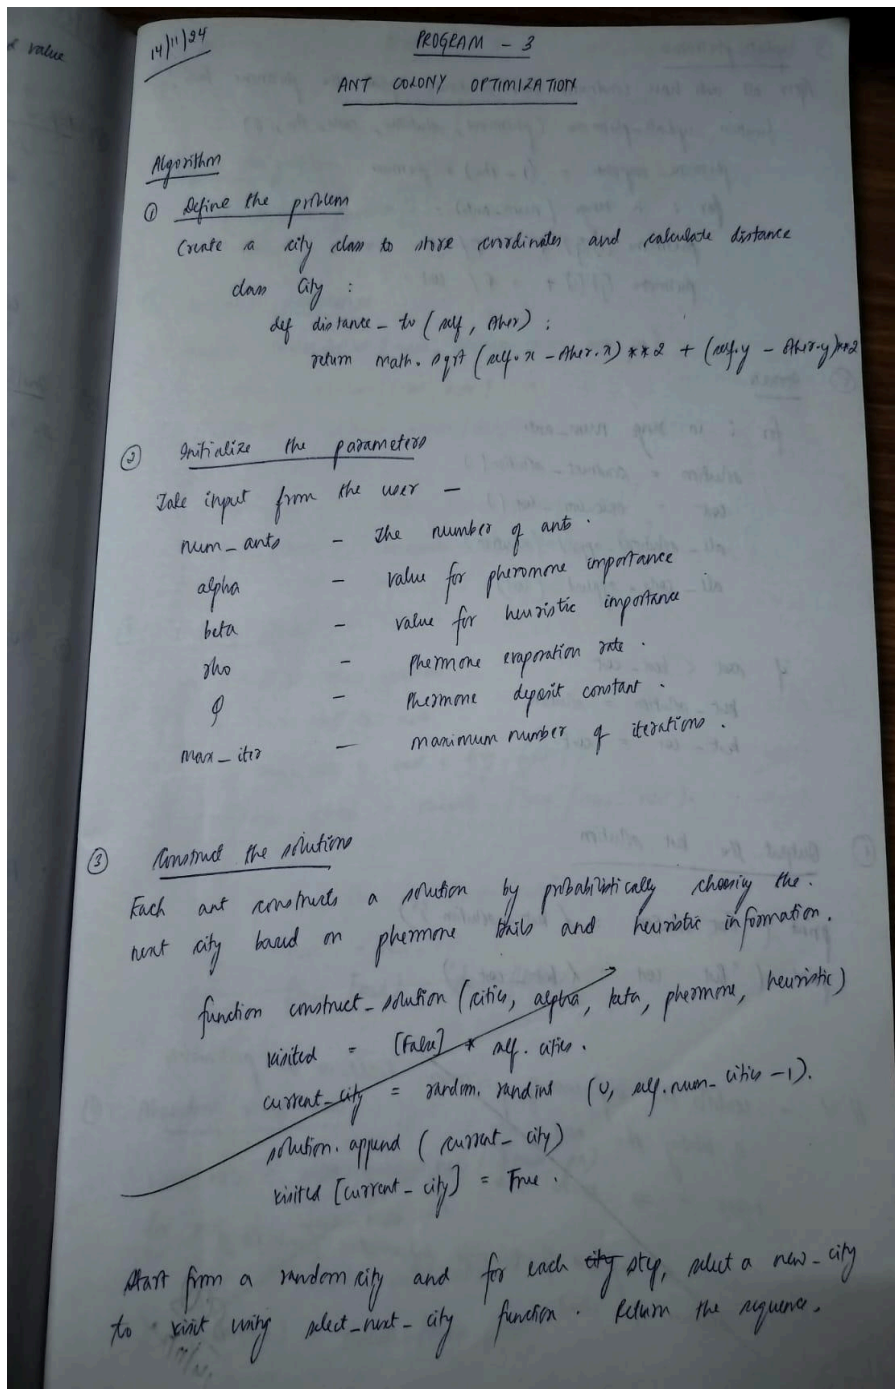 value
14/11/24
PROGRAM - 3
ANT COLONY OPTIMIZATION
Algorithm
① Define the problem
Create a city class to store coordinates and calculate distance
class City :
def distance_to (self, other) :
return math.sqrt (self.x - other.x) **2 + (self.y - other.y)**2
② Initialize the parameters
Take input from the user —
num_ants - The number of ants.
alpha - value for pheromone importance
beta - value for heuristic importance
rho - Phermone evaporation rate.
Q - Phermone deposit constant.
max_iter — maximum number of iterations.
③ Construct the solutions
Each ant constructs a solution by probabilistically choosing the.
next city based on phermone trails and heuristic information.
function construct_solution (cities, alpha, beta, phermone, heuristic)
visited = [False] * self.cities.
current_city = random.randint (0, self.num_cities -1).
solution.append (current_city)
visited [current_city] = True.
Start from a random city and for each city step, select a new_city
to visit using select_next_city function. Return the sequence.